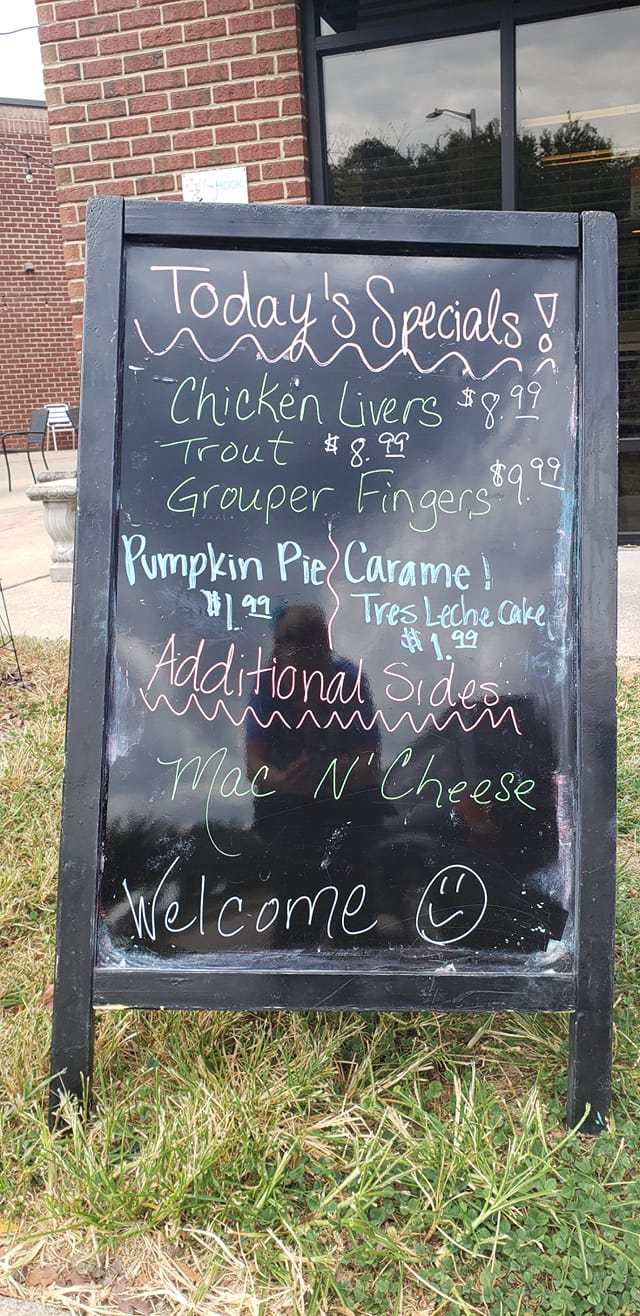 HOOK
Today's Specials!
Chicken Livers $8.99
Trout $8.99
Grouper Fingers $9.99
Pumpkin Pie
$1.99
Caramel
Tres Leche Cake
$1.99
Additional Sides
Mac N' Cheese
Welcome